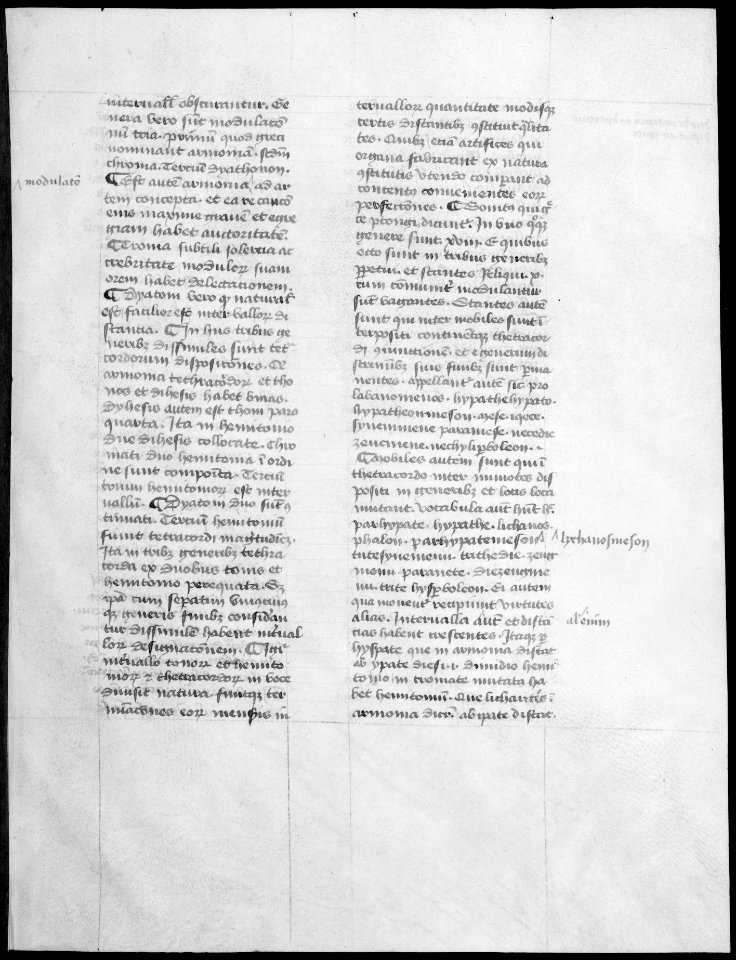 intervall obscurantur. Ge
nera vero sūt modulatō
nū tria. primū quod greci
nominant armoniā. sc̄dm̄
chroma. Tercíū dyathonon.
modulatō
¶ Est autē armonia ad ar
tem concepta. et ea re cautō
eius maxime grauē et egre
giam habet auctoritatē.
Croma subtili solercia ac
crebritate modulor̄ suam
orem habet delectacionem.
¶ Dyatoni vero natural̄
est facilior est intervallor̄ di
stancia. ¶ In his tribus ge
neribȝ dissimiles sunt tet̄
cordorum disposicōnes.
armonia tethracordor̄ et tho
nos et dihesis habet binas.
Dyhesis autem est thoni pars
quarta. Ita in hemitonio
due dihesis collocate. Chro
mati duo hemitonia ī ordi
ne sunt composita. Terciū
tonum hemitonior̄ est inter
vallū. ¶ Dyatoni duo sūt 9
tinuati. Terciū hemitoniū
finit tetracordi magnitudiēȝ.
Ita in tribȝ generibȝ tethra
corda ex duobus tonis et
hemitonio perequata. Sȝ
ip̄a cum sepatim vniuscuius
qȝ generis finibȝ considan
tur dissimilē habent īteruал
lor̄ designacōnem. ¶ Igit̄
īteruallo tonor̄ et hemito
nior̄ et thetracordor̄ in voce
diuisit natura. finitqȝ ter
minacōnes eor̄ mensis in
tervallor̄ quantitate modisqȝ
certis distantibȝ 9stituit q̄lita
tes. Quibȝ eciā artifices qui
organa fabricant ex natura
9stitutis vtendo comparant ad
contentus conuenientes eor̄
perfectōnes. ¶ Sonitus qui gͬ
ce ptongi dicunt̄. In vno q̄qȝ
genere sunt. xviii. E quibus
octo sunt in tribus generibȝ
ppetui. et stantes Reliqui. x.
cum comunit̄ modulantur
sūt vagantes. Stantes autē
sunt qui inter mobiles sunt ī
terpositi continētqȝ thetracor
di 9iunctionē. et e generum di
scriminibȝ suis finibȝ sunt perma
nentes. appellant̄ autē sic. pro
labanomenos. hypathehypato.
hypatheonmeson. Mese. ıqece.
synemmene paramese. necedie
zeucmene. nechyliperboleon.
¶ Mobiles autem sunt qui ī
thetracordo inter inmotos dis
positi in generibȝ et locis loca
mutant. vocabula aut̄ hn̄t h̄.
parhypate. hypathe. lichanos.
phalon. parhypatemeson
lychanosmeson
tritesynemenu. tarthe die. zeug
menu. paranete. diezeugme
nu. trite hyperboleon. Ei autem
qua mouent̄ recipiunt virtutes
alias. Intervalla aūt et distā
al'enim
cias habent crescentes. Itaqȝ p
hypate que in armonia distat
ab ypate diesi .i. dimidio hemi
tonio in cromate mutata ha
bet hemitoniū. Que licharites ī
armonia dicit̄. ab ipate distat.